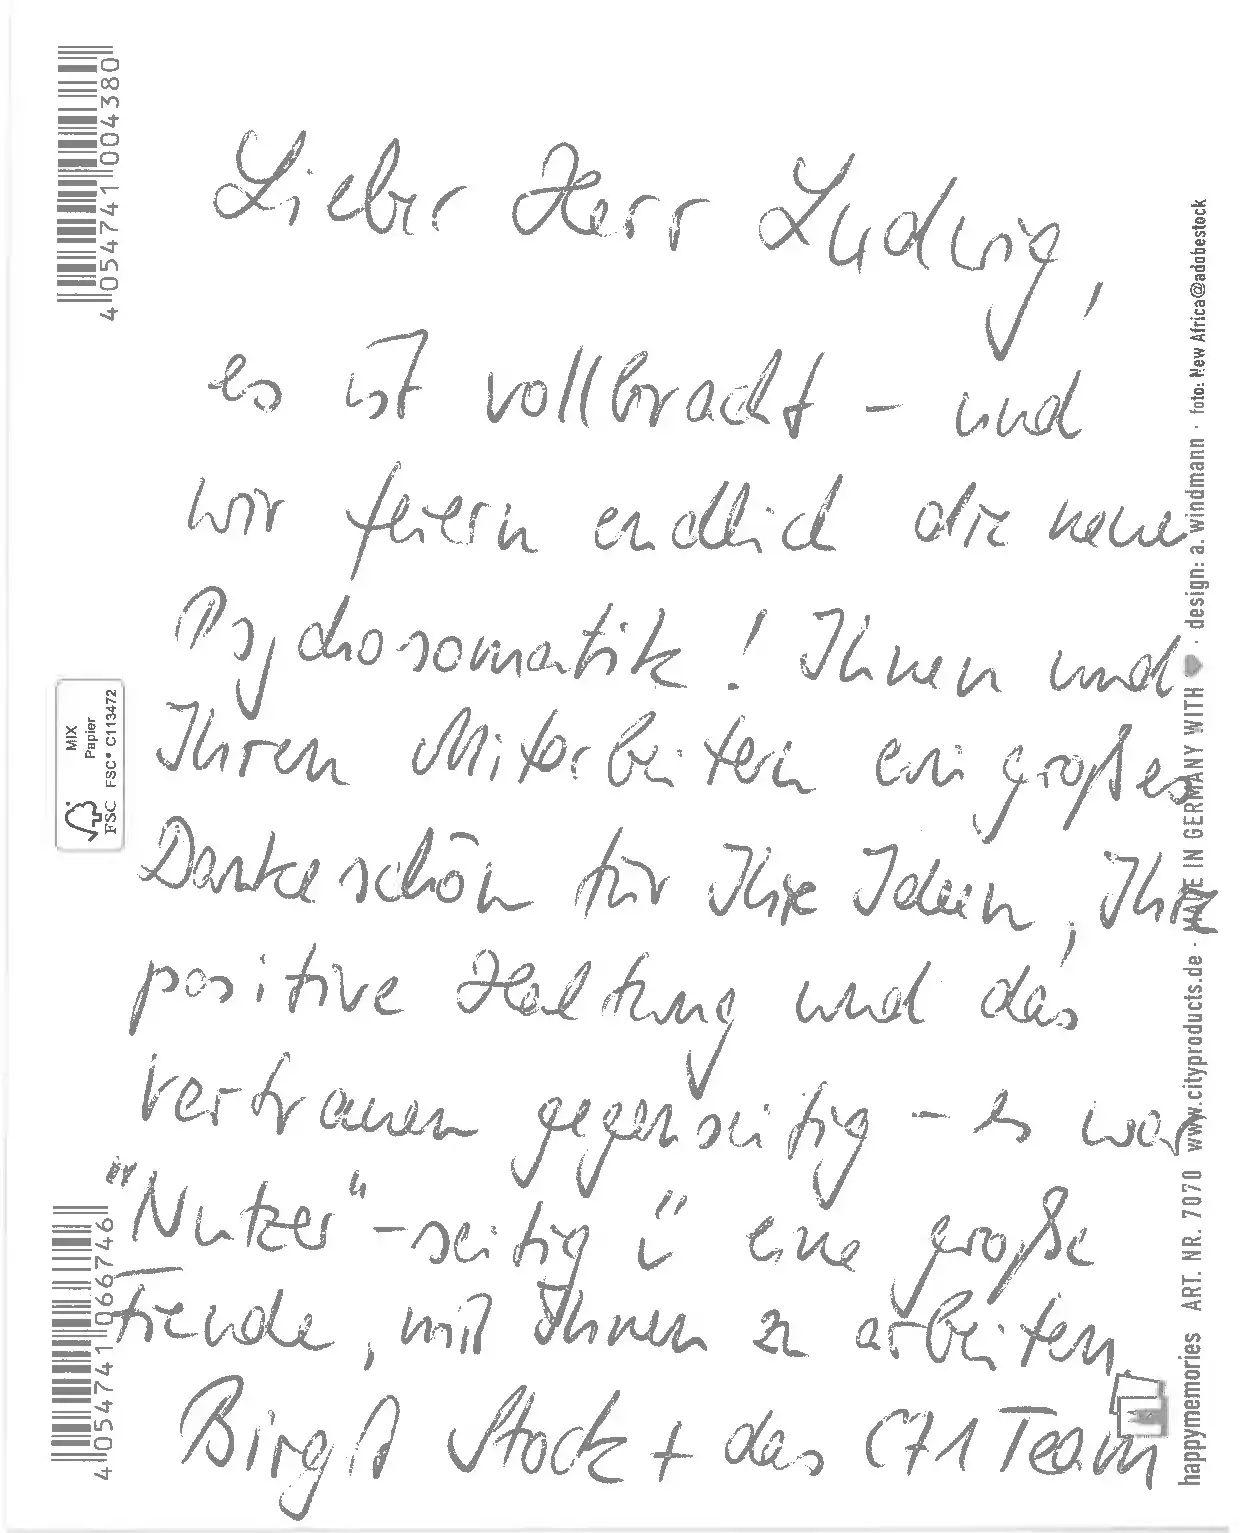 Lieber Herr Ludwig,
es ist vollbracht - und
wir feiern endlich die neue
Psychosomatik! Ihnen und
Ihren Mitarbeitern ein großes
Dankeschön für Ihre Ideen, Ihre
positive Haltung und das
Vertrauen gegenseitig - es war
"Nutzer"-seitig eine große
Freude, mit Ihnen zu arbeiten.
Birgit Stock + das C71 Team
4 054741 004380
MIX
Papier
FSC FSC® C113472
4 054741 066746
happymemories ART. NR. 7070 www.cityproducts.de · MADE IN GERMANY WITH ♥ · design: a. windmann · foto: New Africa@adobestock